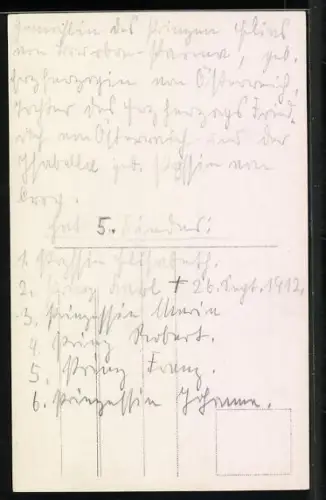 Gemahlin des Prinzen Elias
von Bourbon-Parma, geb.
Erzherzogin von Österreich,
Tochter des Erzherzogs Fried-
rich von Österreich und der
Isabella geb. Prssin von
Croy.
hat 5. Kinder:
1. Przssin Elisabeth.
2. Prinz Karl + 26. Sept. 1912.
3. Prinzessin Maria
4. Prinz Robert.
5. Prinz Franz.
6. Prinzessin Johanna.